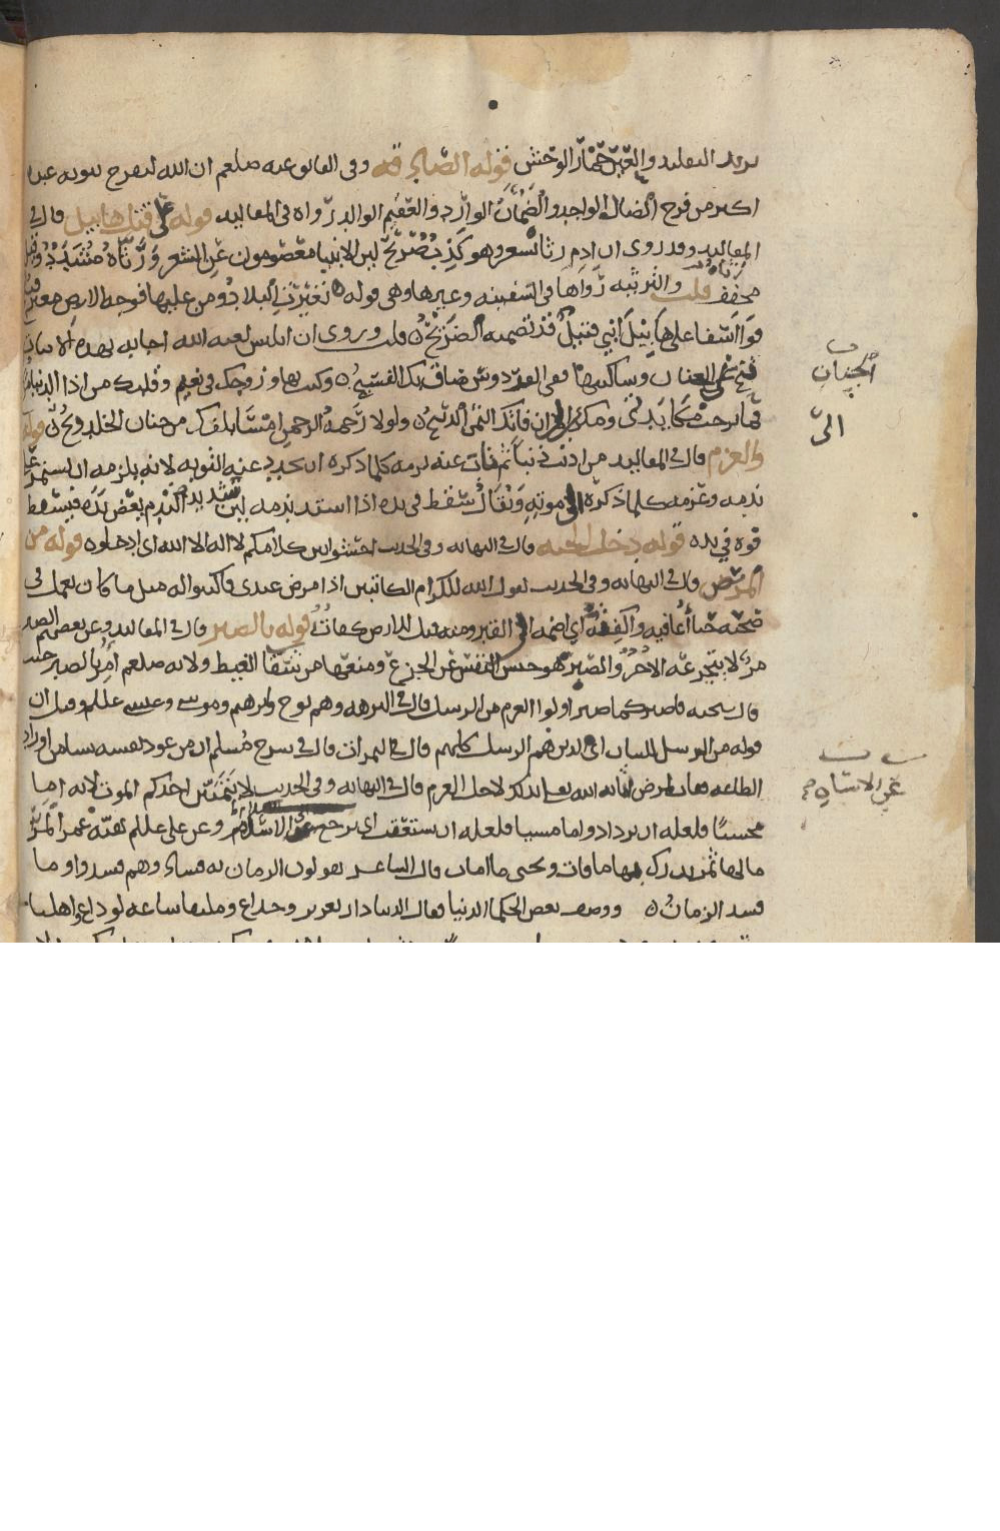 يريد التقليد والعير حمار الوحش قوله الضالة وفي الفائق عنه صلعم ان الله ليفرح بتوبة عبده
اكثر من فرح الضال الواجد والضمآن الوارد والعقيم الوالد رواه في المقاليد قوله على قتل هابيل قال في
المقاليد وقد روي ان ادم رثا بشعر وهو كذب صريح لان الانبيا معصومون عن الشعر ورثاه مشدد
مخفف قلت والمرثية رواها في السفينة وغيرها وهي قوله تغيرت البلاد ومن عليها فوجه الارض مغبر
فوا اسفا على هابيل ابني قتيل قد تضمنه الضريح قلت وروي ان ابليس لعنه الله اجابه بهذه الابيات
تنح عن الجنان وساكنيها ففي الفردوس ضاق بك الفسيح وكنت بها وزوجك في نعيم وقلبك من اذا الدنيا
فما برحت مكايدتي ومكري الى ان فاتك الثمن الربيح ولولا رحمة الرحمن امسا بكفك من جنان الخلد ريح قوله
والعزم قال في المقاليد من اذنب ذنبا ثم تاب عنه لزمه كلما ذكره ان يجدد عنه التوبة لانه يلزمه ان يستمر على
ندمه وعزمه كلما ذكره الى موته ويقال سقط في يده اذا اشتد ندمه لان شديد الندم يعض يده فيسقط
فوه في يده قوله دخل الجنة قال في النهاية وفي الحديث احشوا من كلامكم لا اله الا الله اي ادخلوه قوله من
المرض قال في النهاية وفي الحديث يقول الله للكرام الكاتبين اذا مرض عبدي فاكتبوا له مثل ما كان يعمل في
صحته حتى أعافيه وأكفته اي اضمه الى القبر ومنه قيل للارض كفات قوله بالصبر قال في المقاليد وعن بعضهم الصبر
مر لا يتجرعه الا حر والصبر هو حبس النفس عن الجزع ومنعها من شفا الغيظ ولانه صلعم امر بالصبر حيث
قال سبحنه فاصبر كما صبر اولوا العزم من الرسل قال في البرهه وهم نوح وابرهيم وموسى وعيسى عللم وقيل ان
قوله من الرسل للبيان اي الذين هم الرسل كلهم قال في الثمرات قال في شرح مسلم ان من عود نفسه
الطاعة فعان لمرض اثابه الله لاجل العزم قال في النهاية وفي الحديث لا يتمنين احدكم الموت لانه اما
محسنًا فلعله ان يزداد واما مسيا فلعله ان يستعتب اي يرجع عن الاساءة وعن علي عللم بقية عمر المرء
ما لها ثمن يدرك بها ما فات ويحيى ما امات قال الشاعر يقولون الزمان به فساد وهم فسدوا وما
فسد الزمان ووصف بعض الحكما الدنيا فقال الدنيا دار تغرير وخداع وملتقا ساعة لوداع واهلها
الجنان
الى
عن الاساه صح